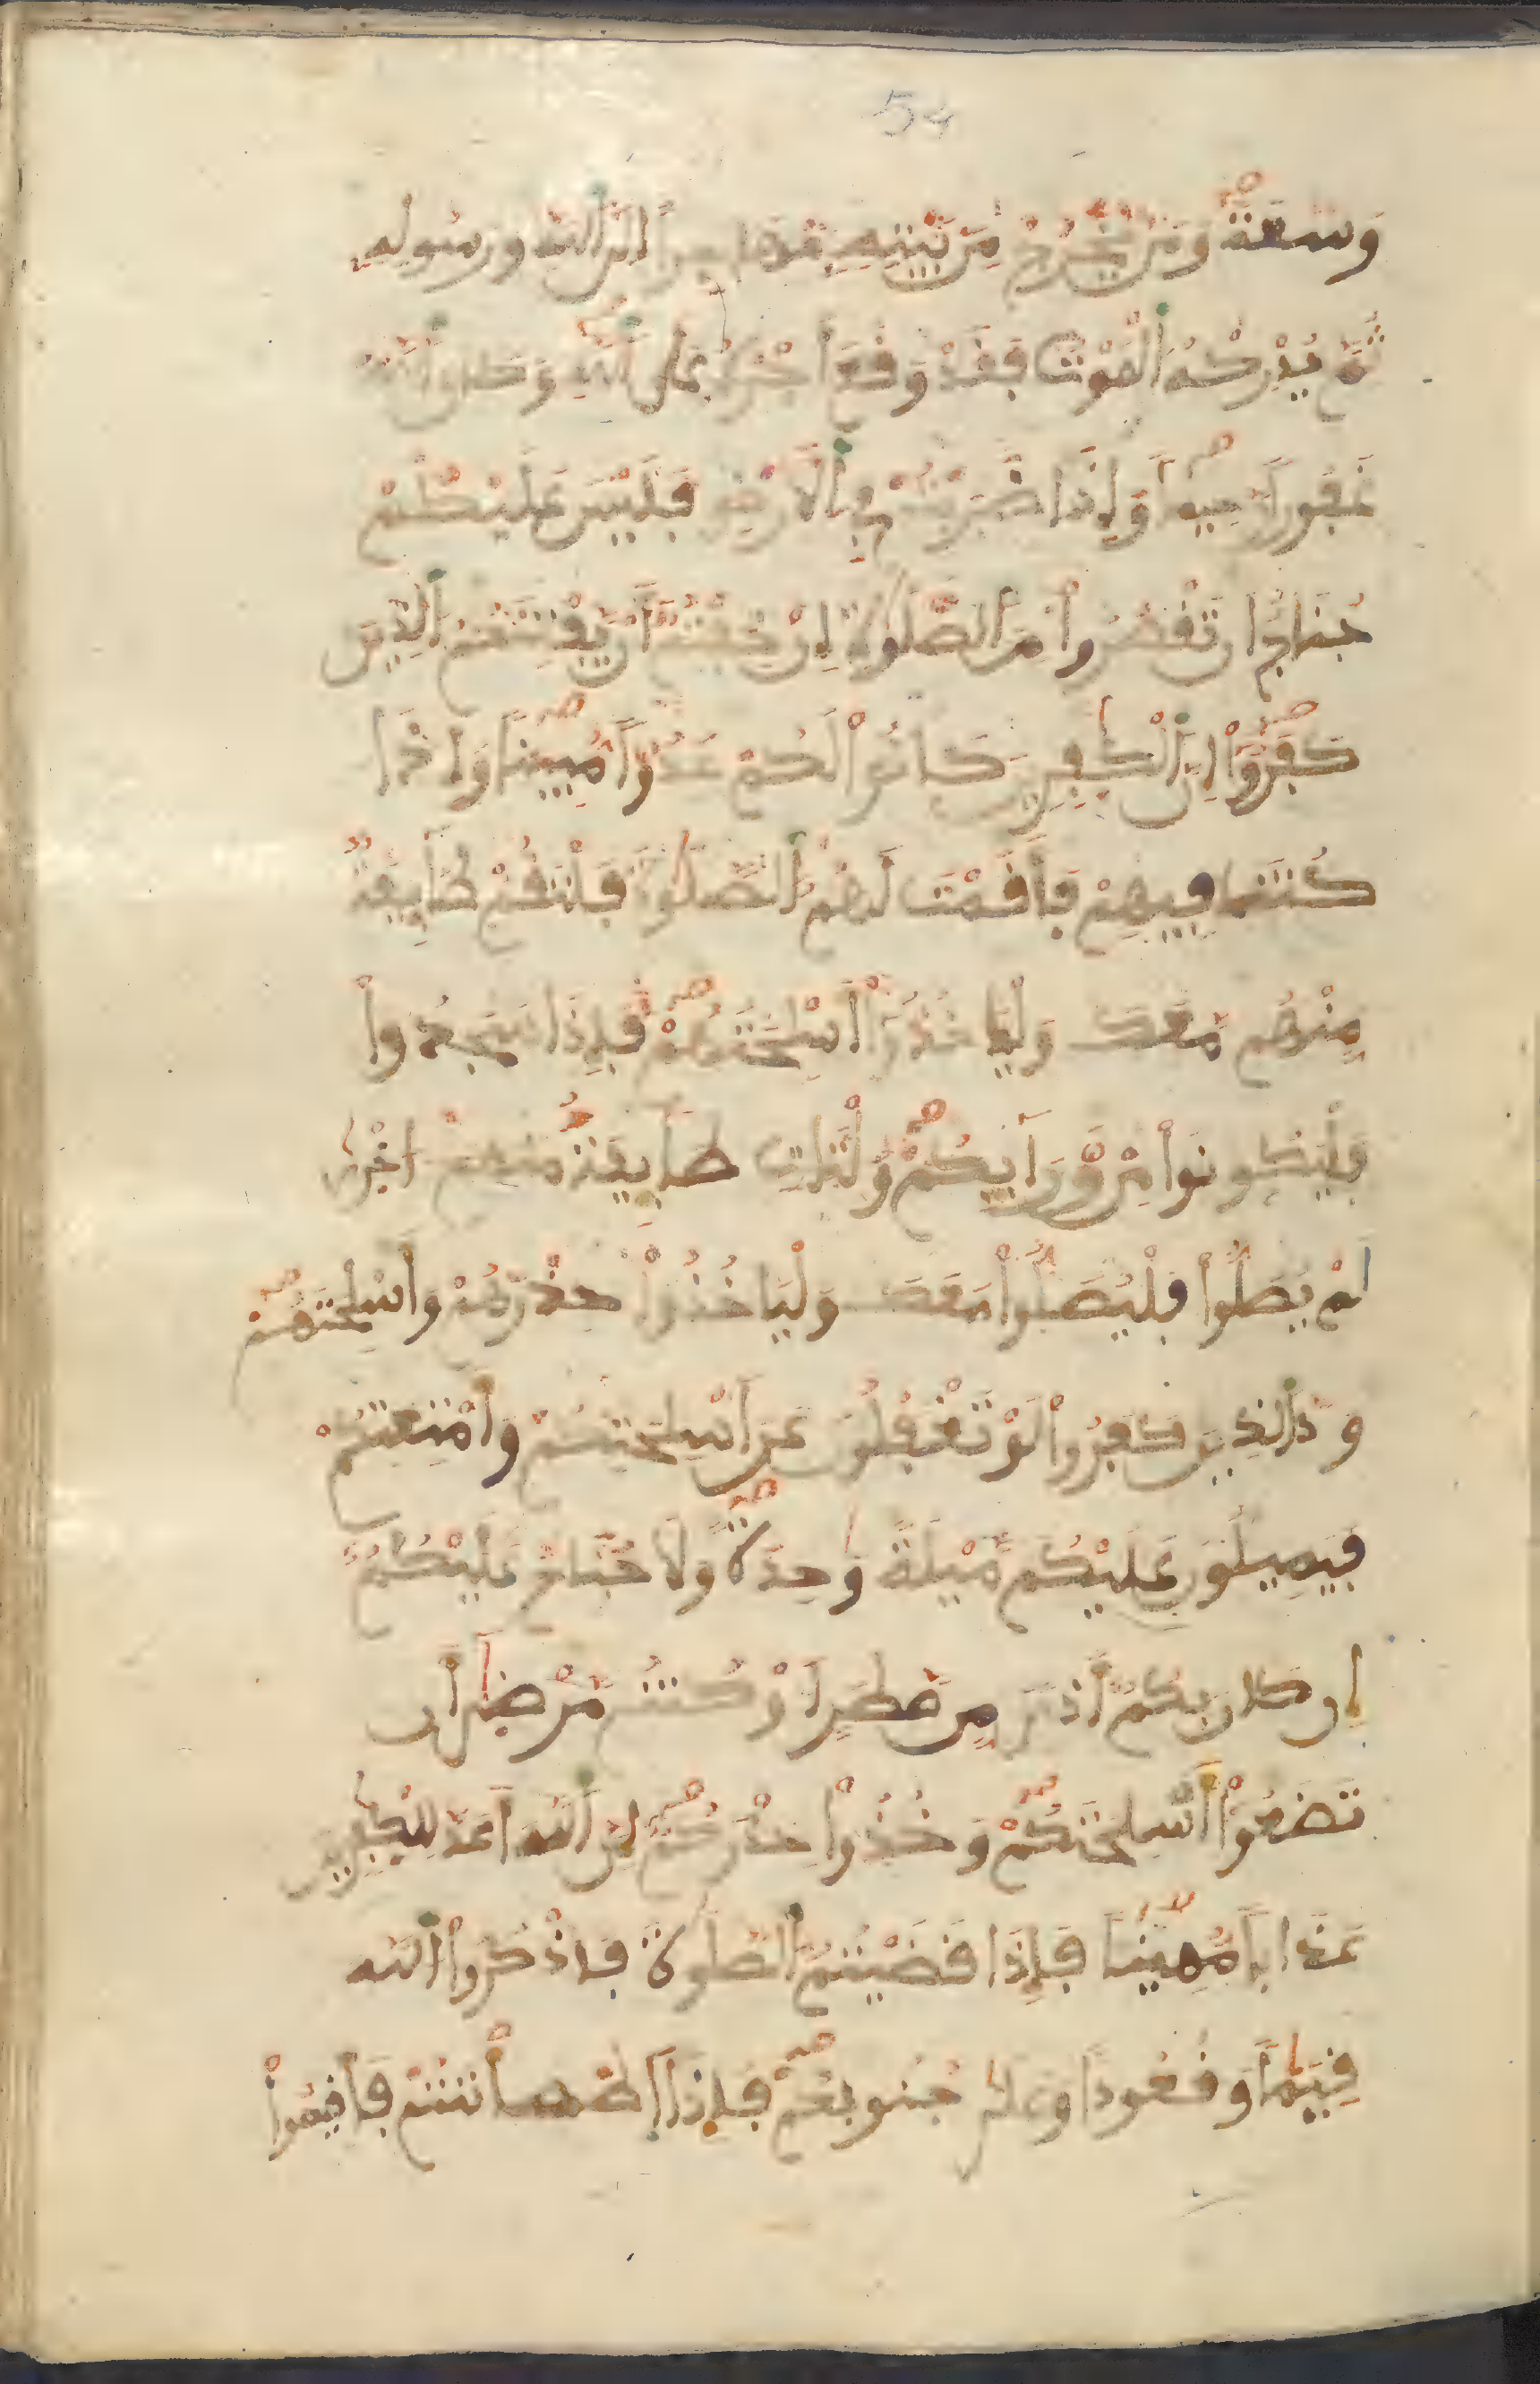 54
وَسَعَةً وَمَنْ يَّخْرُجْ مِنۢ بَيْتِهِ مُهَاجِراً اِلَى اَ۬للَّهِ وَرَسُولِهِ
ثُمَّ يُدْرِكْهُ اُ۬لْمَوْتُ فَقَدْ وَقَعَ أَجْرُهُ عَلَى اَ۬للَّهِ وَكَانَ اَ۬للَّهُ
غَفُوراً رَّحِيماً وَإِذَا ضَرَبْتُمْ فِي اِ۬لْأَرْضِ فَلَيْسَ عَلَيْكُمْ
جُنَاحٌ اَن تَقْصُرُواْ مِنَ اَ۬لصَّلَوٰةِ إِنْ خِفْتُمُ أَنْ يَّفْتِنَكُمُ اُ۬لذِينَ
كَفَرُوٓاْ إِنَّ اَ۬لْكٰفِرِينَ كَانُواْ لَكُمْ عَدُوّاً مُّبِيناً وَإِذَا
كُنتَ فِيهِمْ فَأَقَمْتَ لَهُمُ اُ۬لصَّلَوٰةَ فَلْتَقُمْ طَآئِفَةٌ
مِّنْهُم مَّعَكَ وَلْيَاخُذُوٓاْ أَسْلِحَتَهُمْ فَإِذَا سَجَدُواْ
فَلْيَكُونُواْ مِنْ وَّرَآئِكُمْ وَلْتَاتِ طَآئِفَةٌ مِّنْهُمُ أُخْرٰى
لَمْ يُصَلُّواْ فَلْيُصَلُّواْ مَعَكَ وَلْيَاخُذُواْ حِذْرَهُمْ وَأَسْلِحَتَهُمْ
وَدَّ اَ۬لذِينَ كَفَرُواْ لَوْ تَغْفُلُونَ عَنَ اَسْلِحَتِكُمْ وَأَمْتِعَتِكُمْ
فَيَمِيلُونَ عَلَيْكُم مَّيْلَةً وَٰحِدَةً وَلَا جُنَاحَ عَلَيْكُمُ
إِن كَانَ بِكُمُ أَذىً مِّن مَّطَرٍ اَوْ كُنتُم مَّرْضٰىٓ أَن
تَضَعُوٓاْ أَسْلِحَتَكُمْ وَخُذُواْ حِذْرَكُمُ إِنَّ اَ۬للَّهَ أَعَدَّ لِلْكٰفِرِينَ
عَذَاباً مُّهِيناً فَإِذَا قَضَيْتُمُ اُ۬لصَّلَوٰةَ فَاذْكُرُواْ اُ۬للَّهَ
قِيَٰماً وَقُعُوداً وَعَلَىٰ جُنُوبِكُمْ فَإِذَا اَ۪طْمَأْنَنتُمْ فَأَقِيمُواْ